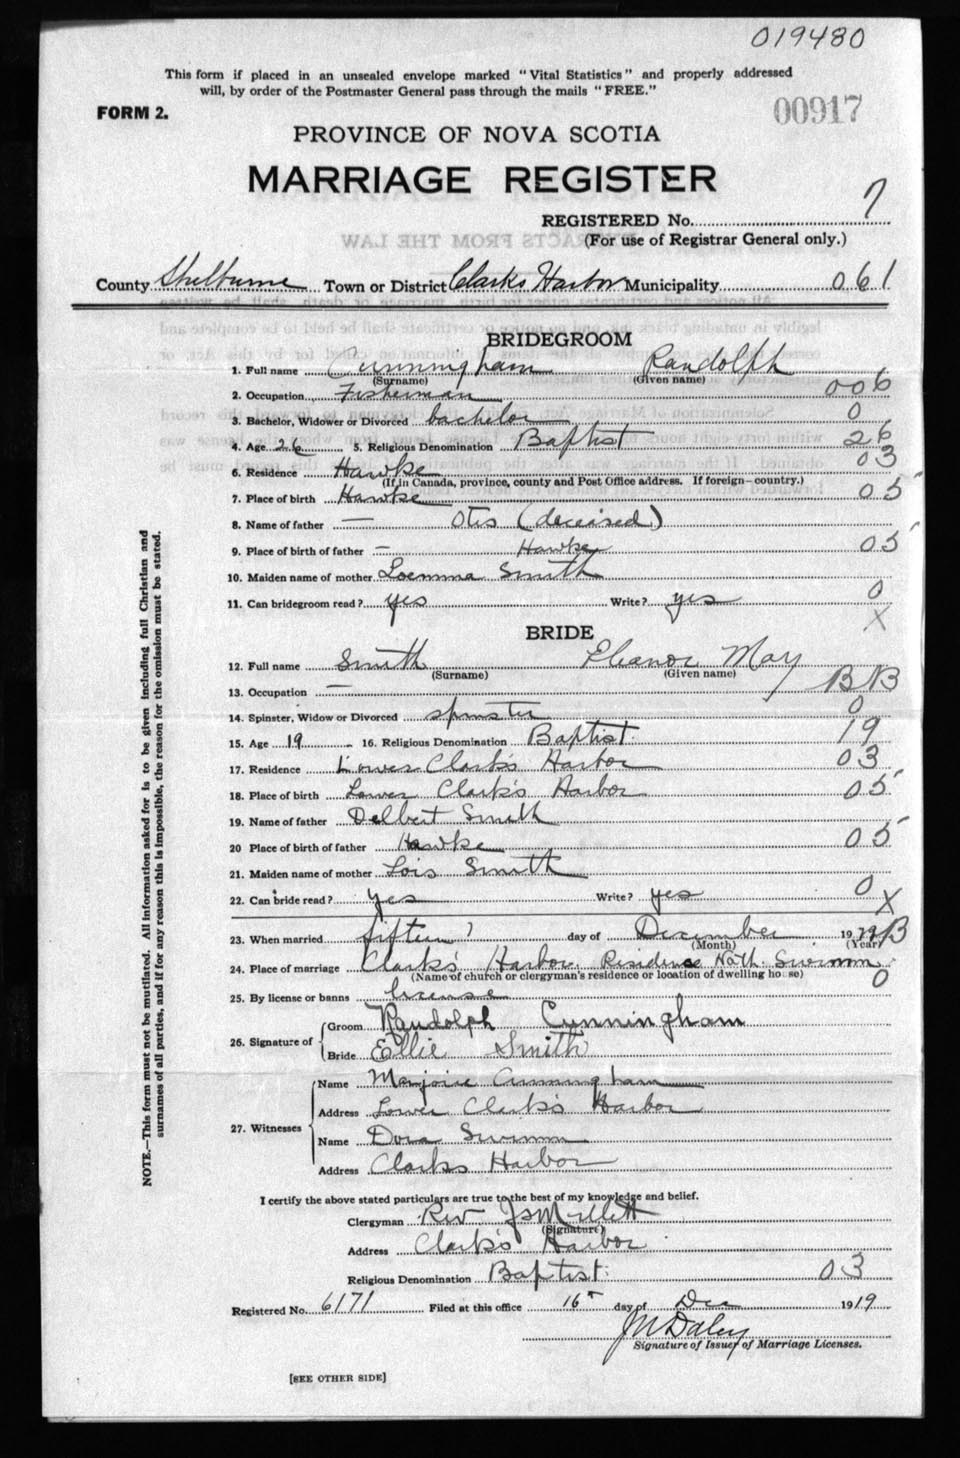 019480
This form if placed in an unsealed envelope marked "Vital Statistics" and properly addressed
will, by order of the Postmaster General pass through the mails "FREE."
FORM 2.
00917
PROVINCE OF NOVA SCOTIA
MARRIAGE REGISTER
REGISTERED No. 7
(For use of Registrar General only.)
County Shelburne Town or District Clarks Harbor Municipality 061
BRIDEGROOM
1. Full name Cunningham Randolph
(Surname) (Given name)
2. Occupation Fisherman 006
3. Bachelor, Widower or Divorced bachelor 0
4. Age 26 5. Religious Denomination Baptist 26
6. Residence Hawke 03
(If in Canada, province, county and Post Office address. If foreign—country.)
7. Place of birth Hawke 05
8. Name of father — Otis (deceised)
9. Place of birth of father — Hawke 05
10. Maiden name of mother Loemma Smith
11. Can bridegroom read? yes Write? yes 0
X
BRIDE
12. Full name Smith Eleanor May
(Surname) (Given name)
13. Occupation — BNB
14. Spinster, Widow or Divorced spinster 0
15. Age 19 16. Religious Denomination Baptist. 19
17. Residence Lower Clark's Harbor 03
18. Place of birth Lower Clark's Harbor 05
19. Name of father Delbert Smith
20 Place of birth of father Hawke 05
21. Maiden name of mother Lois Smith
22. Can bride read? yes Write? yes 0
X
23. When married fifteen day of December 19
(Month) (Year)
24. Place of marriage Clark's Harbor Residence Nath. Swimm
(Name of church or clergyman's residence or location of dwelling house) 0
25. By license or banns license
26. Signature of Groom Randolph Cunningham
Bride Ellie Smith
27. Witnesses Name Marjorie Cunningham
Address Lower Clark's Harbor
Name Dora Swimm
Address Clarks Harbor
I certify the above stated particulars are true to the best of my knowledge and belief.
Clergyman Rev
(Signature)
Address Clark's Harbor
Religious Denomination Baptist. 03
Registered No. 6171 Filed at this office 16 day of Dec 1919
J M Daley
Signature of Issuer of Marriage Licenses.
[SEE OTHER SIDE]
NOTE.—This form must not be mutilated. All information asked for is to be given including full Christian and
surnames of all parties, and if for any reason this is impossible, the reason for the omission must be stated.